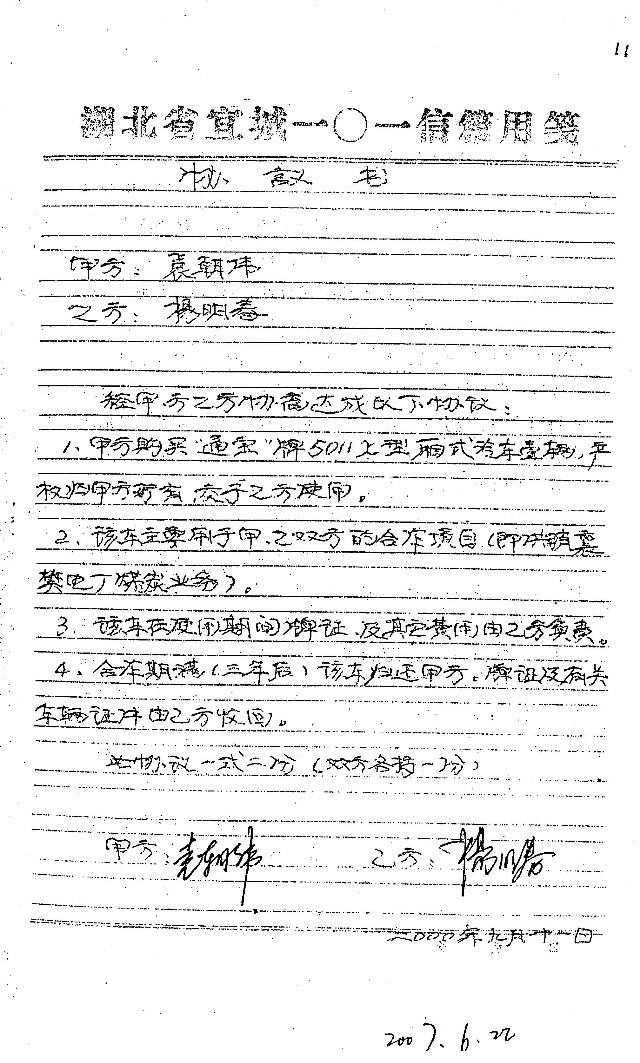 11
湖北省宜城一〇一信箱用笺
协 议 书
甲方：袁朝伟
乙方：杨明春
经甲方乙方协商达成以下协议：
1、甲方购买"通宝"牌5011X型厢式冷车壹辆，产
权归甲方所有，交于乙方使用。
2、该车主要用于甲、乙双方的合作项目（即供销襄
樊电厂煤炭业务）。
3、该车在使用期间牌证及其它费用由乙方负责。
4、合作期满（三年后）该车归还甲方。牌证及有关
车辆证件由乙方收回。
此协议一式二份（双方各持一份）
甲方： 乙方：杨明春
二〇〇〇年九月廿一日
2007.6.22